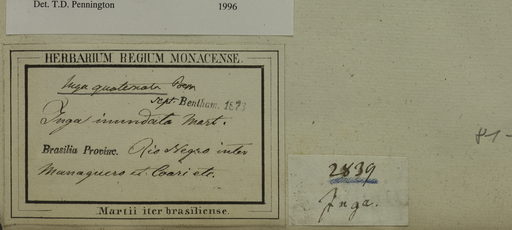 Det. T.D. Pennington 1996
HERBARIUM REGIUM MONACENSE.
Inga quaternata
sept. Bentham. 1873
Inga inundata Mart.
Brasilia Provinc. Rio Negro inter
Managuero et Coari etc.
Martii iter brasiliense.
2839
Inga.
81-